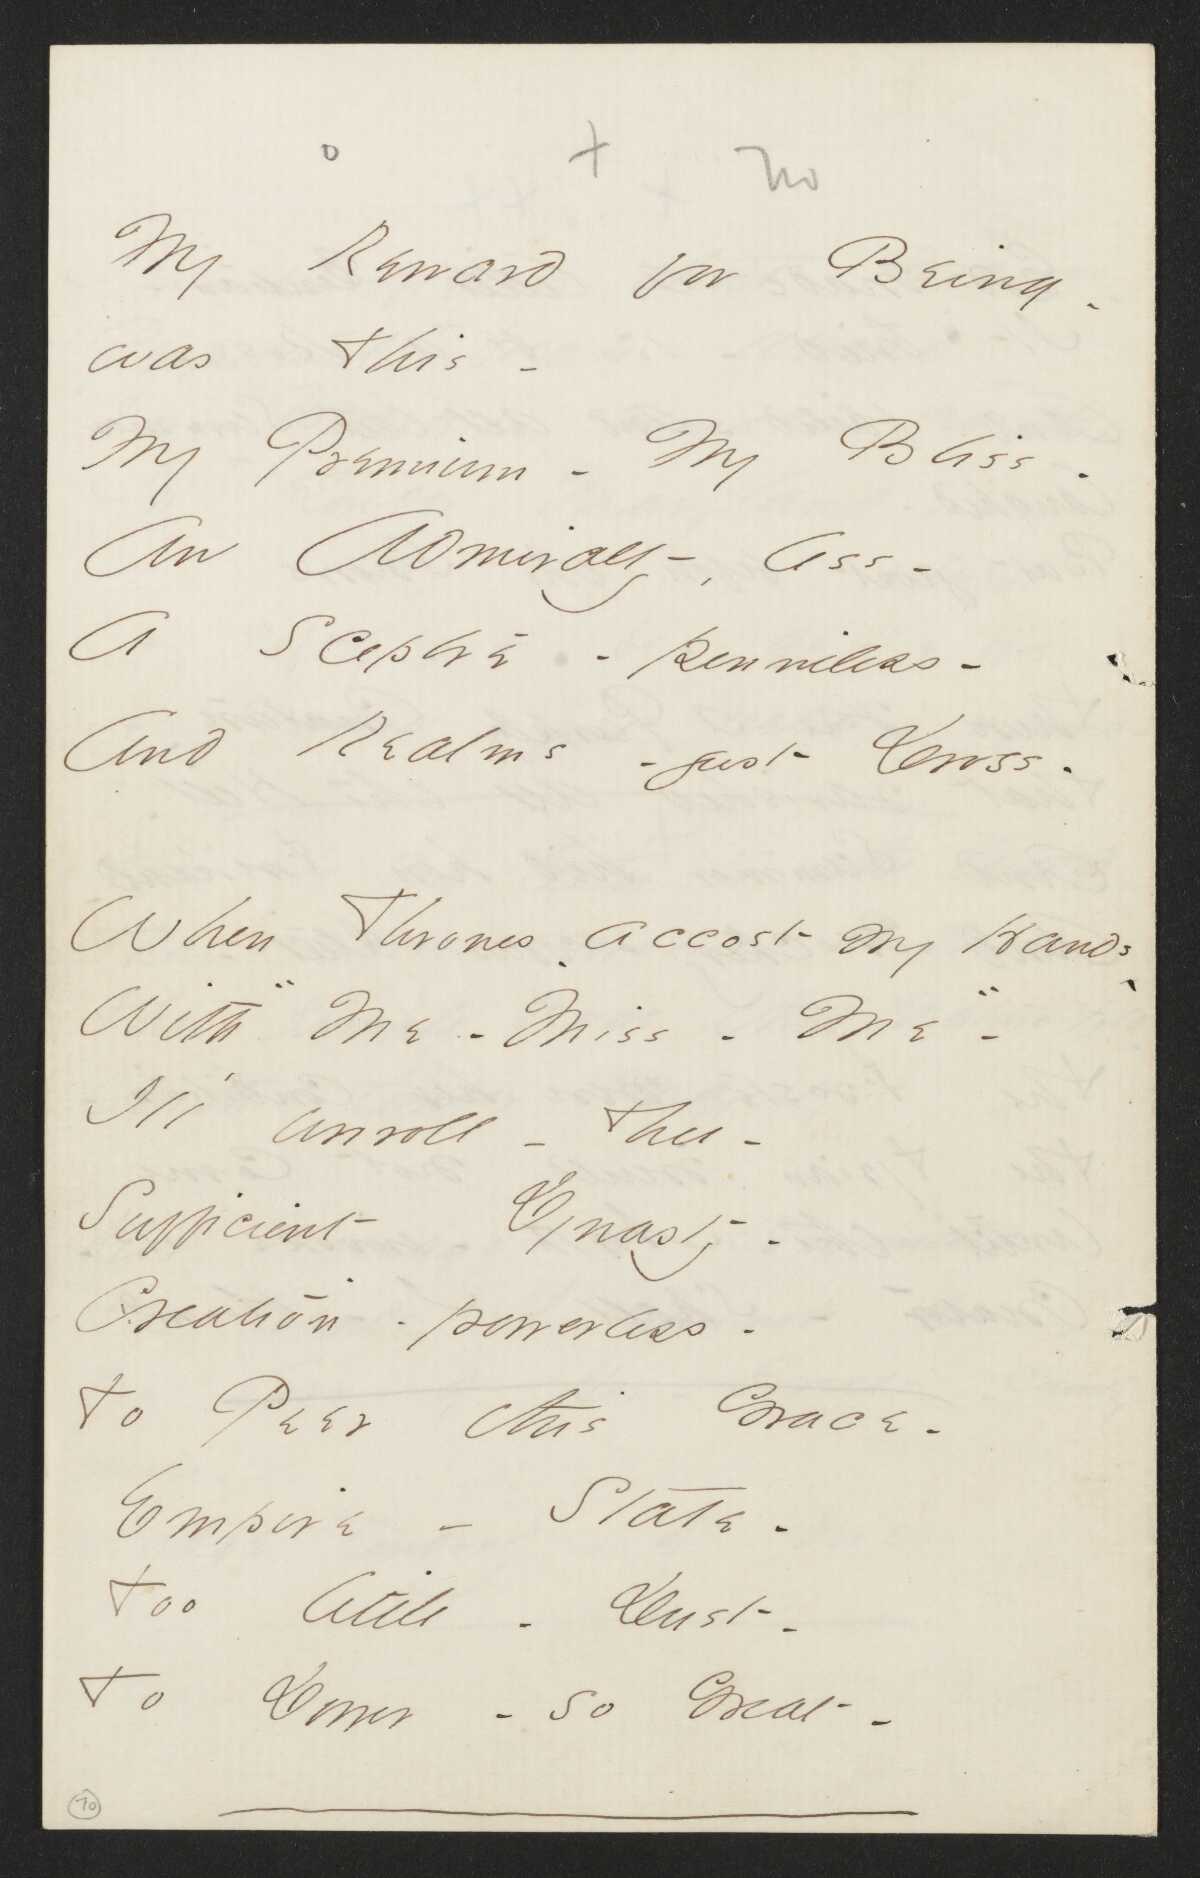 o + No
My Reward for Being -
was this -
My Premium - My Bliss -
An Admiralty, less -
A Sceptre - penniless -
And Realms - just Dross -
When Thrones accost my Hands
With "Me - Miss - Me" -
I'll unroll - Thee -
Sufficient Dynasty -
Creation - powerless -
To Peer this Grace -
Empire - State -
Too little - Dust -
To Dower - so Great -
70